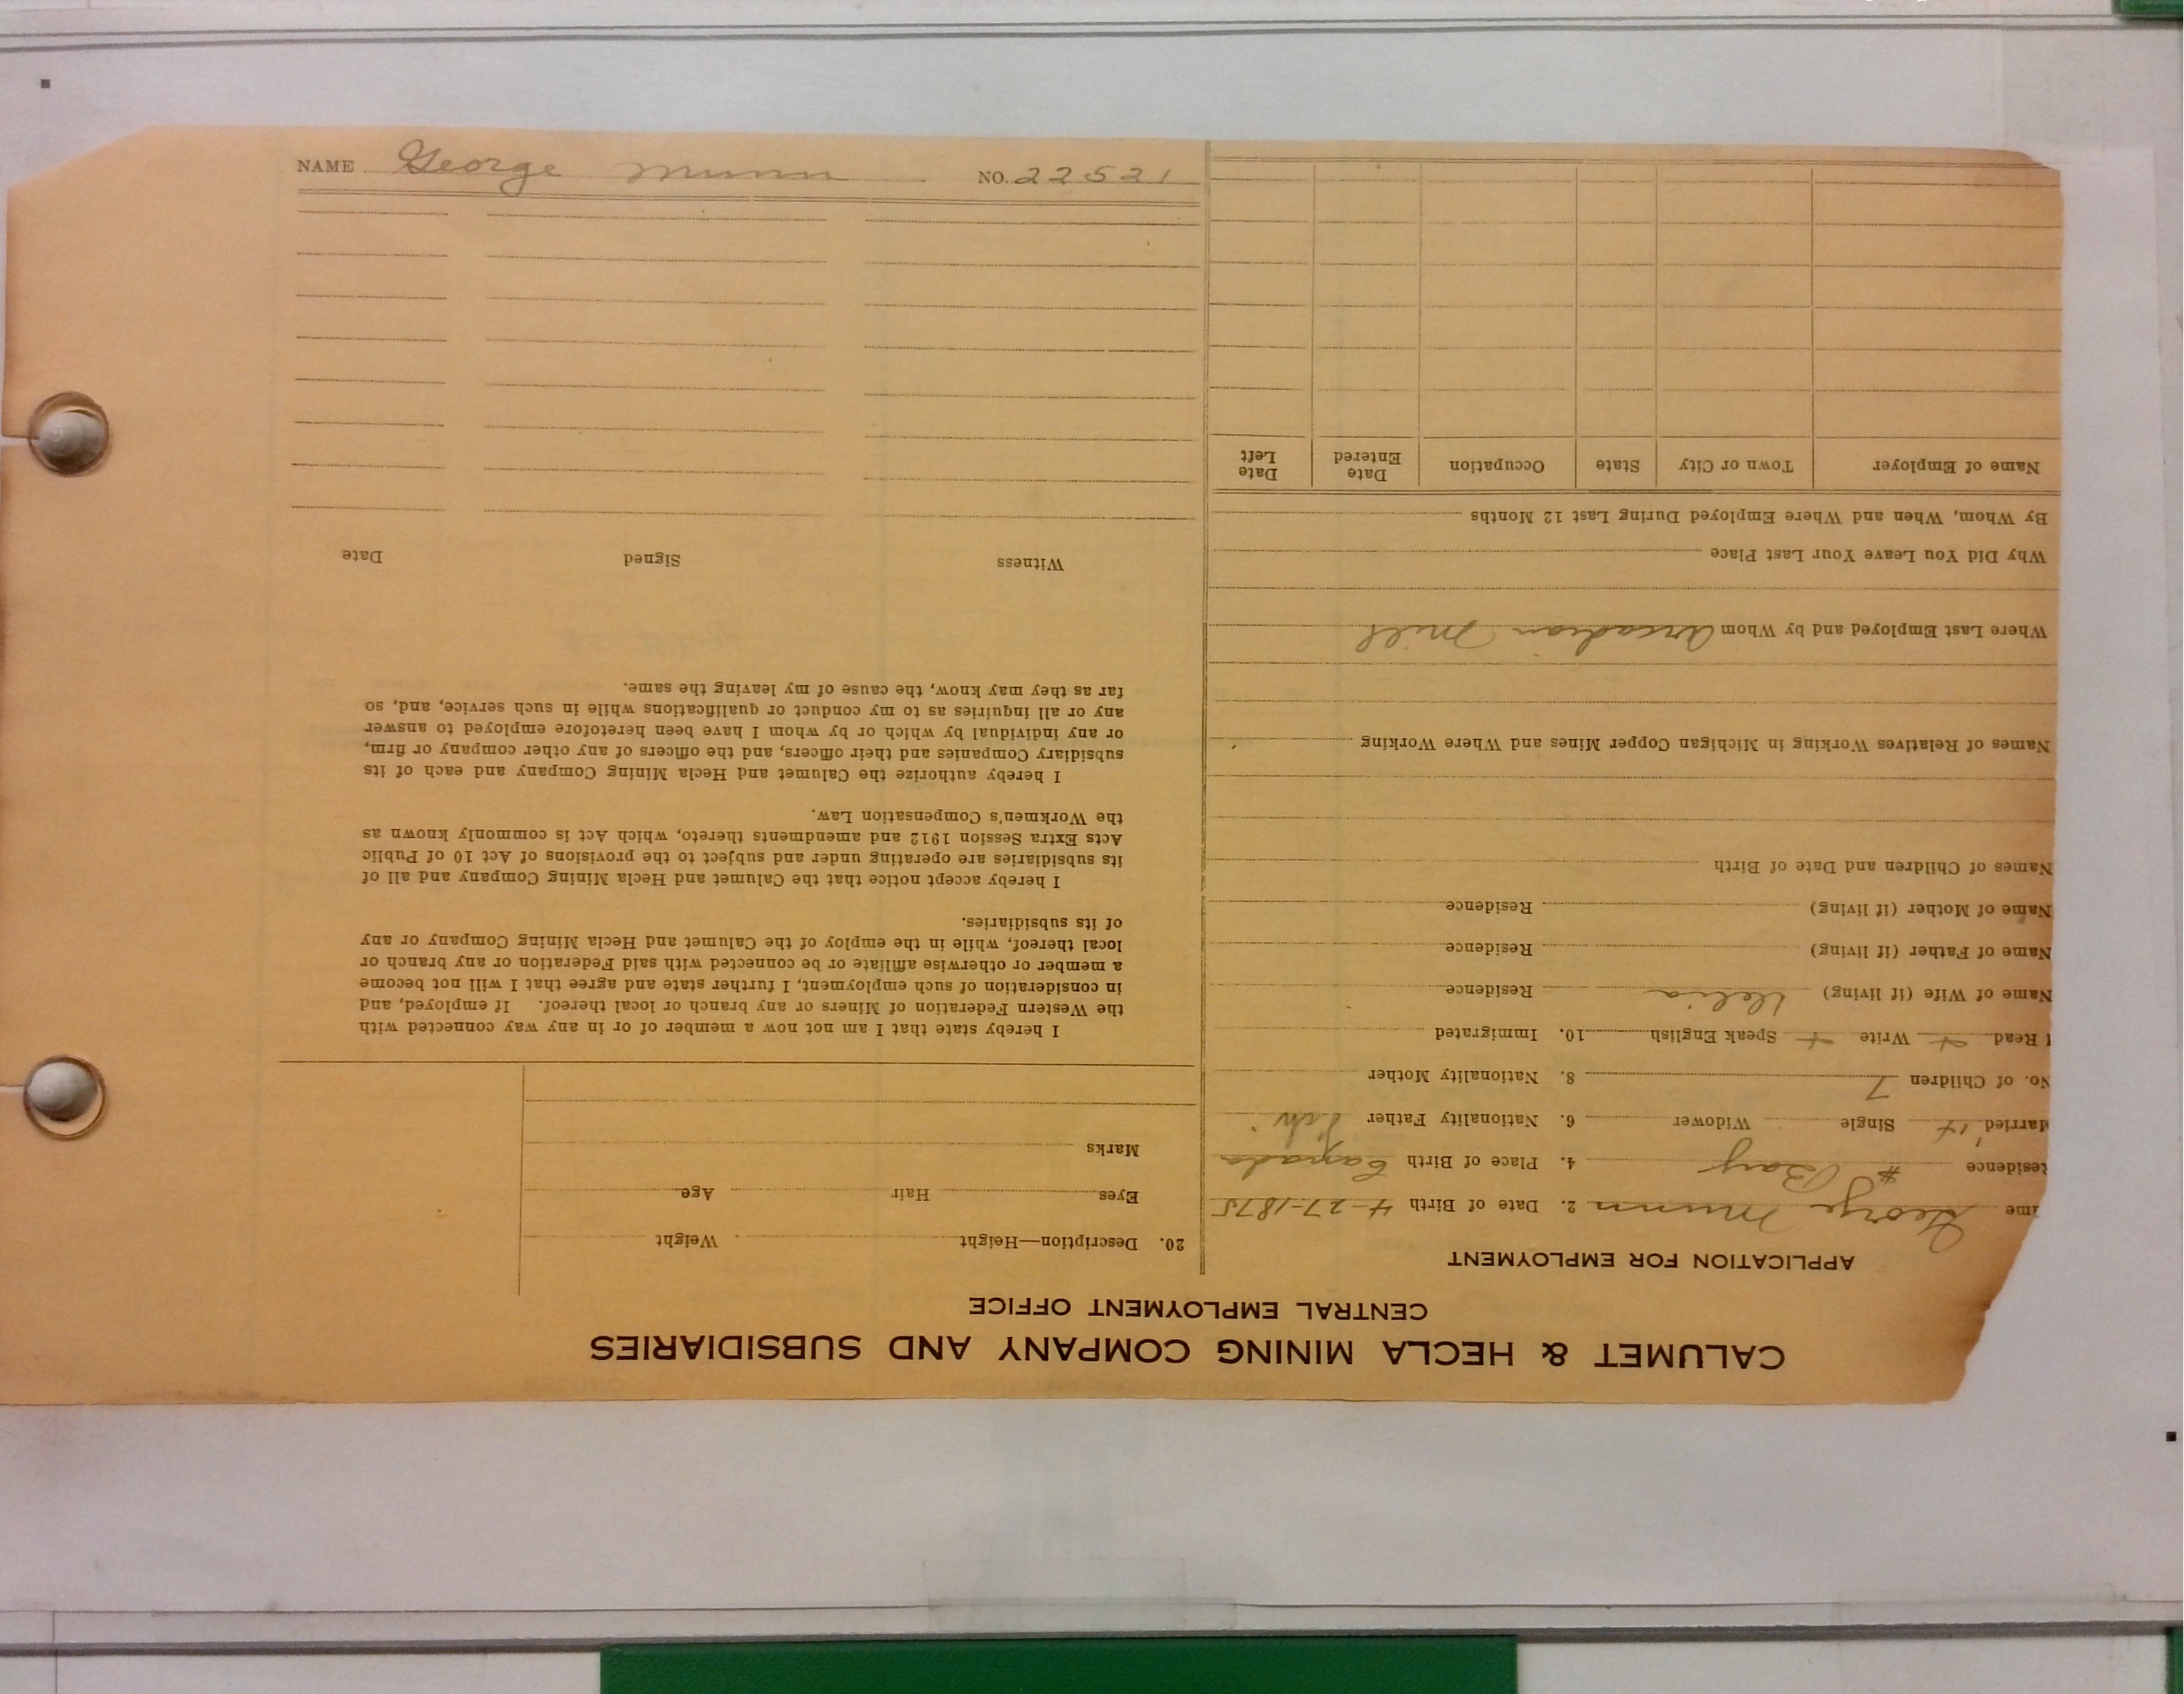 NAME George Munn NO. 22521
CALUMET & HECLA MINING COMPANY AND SUBSIDIARIES
CENTRAL EMPLOYMENT OFFICE
APPLICATION FOR EMPLOYMENT
ame George Munn 2. Date of Birth 4-27-1875
Residence # Bay 4. Place of Birth Canada
Married + Single Widower 6. Nationality Father
No. of Children 7 8. Nationality Mother
Read + Write + Speak English 10. Immigrated
Name of Wife (if living) Delia Residence
Name of Father (if living) Residence
Name of Mother (if living) Residence
Names of Children and Date of Birth
Names of Relatives Working in Michigan Copper Mines and Where Working
Where Last Employed and by Whom Arcadian Mill
Why Did You Leave Your Last Place
By Whom, When and Where Employed During Last 12 Months
Name of Employer Town or City State Occupation Date Entered Date Left
20. Description—Height Weight
Eyes Hair Age
Marks
I hereby state that I am not now a member of or in any way connected with
the Western Federation of Miners or any branch or local thereof. If employed, and
in consideration of such employment, I further state and agree that I will not become
a member or otherwise affiliate or be connected with said Federation or any branch or
local thereof, while in the employ of the Calumet and Hecla Mining Company or any
of its subsidiaries.
I hereby accept notice that the Calumet and Hecla Mining Company and all of
its subsidiaries are operating under and subject to the provisions of Act 10 of Public
Acts Extra Session 1912 and amendments thereto, which Act is commonly known as
the Workmen's Compensation Law.
I hereby authorize the Calumet and Hecla Mining Company and each of its
subsidiary Companies and their officers, and the officers of any other company or firm,
or any individual by which or by whom I have been heretofore employed to answer
any or all inquiries as to my conduct or qualifications while in such service, and, so
far as they may know, the cause of my leaving the same.
Witness Signed Date